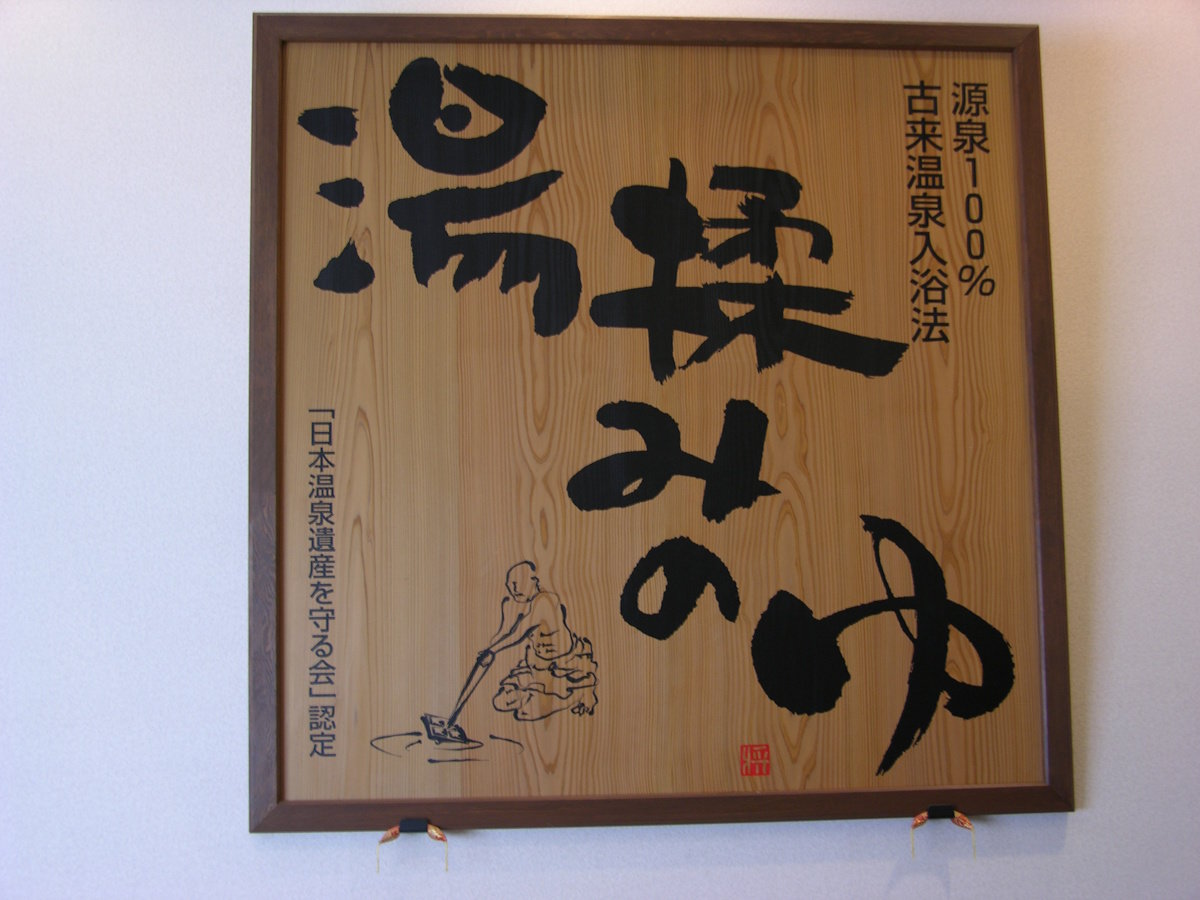 源泉100%
古来温泉入浴法
湯
揉みの
ゆ
「日本温泉遺産を守る会」認定